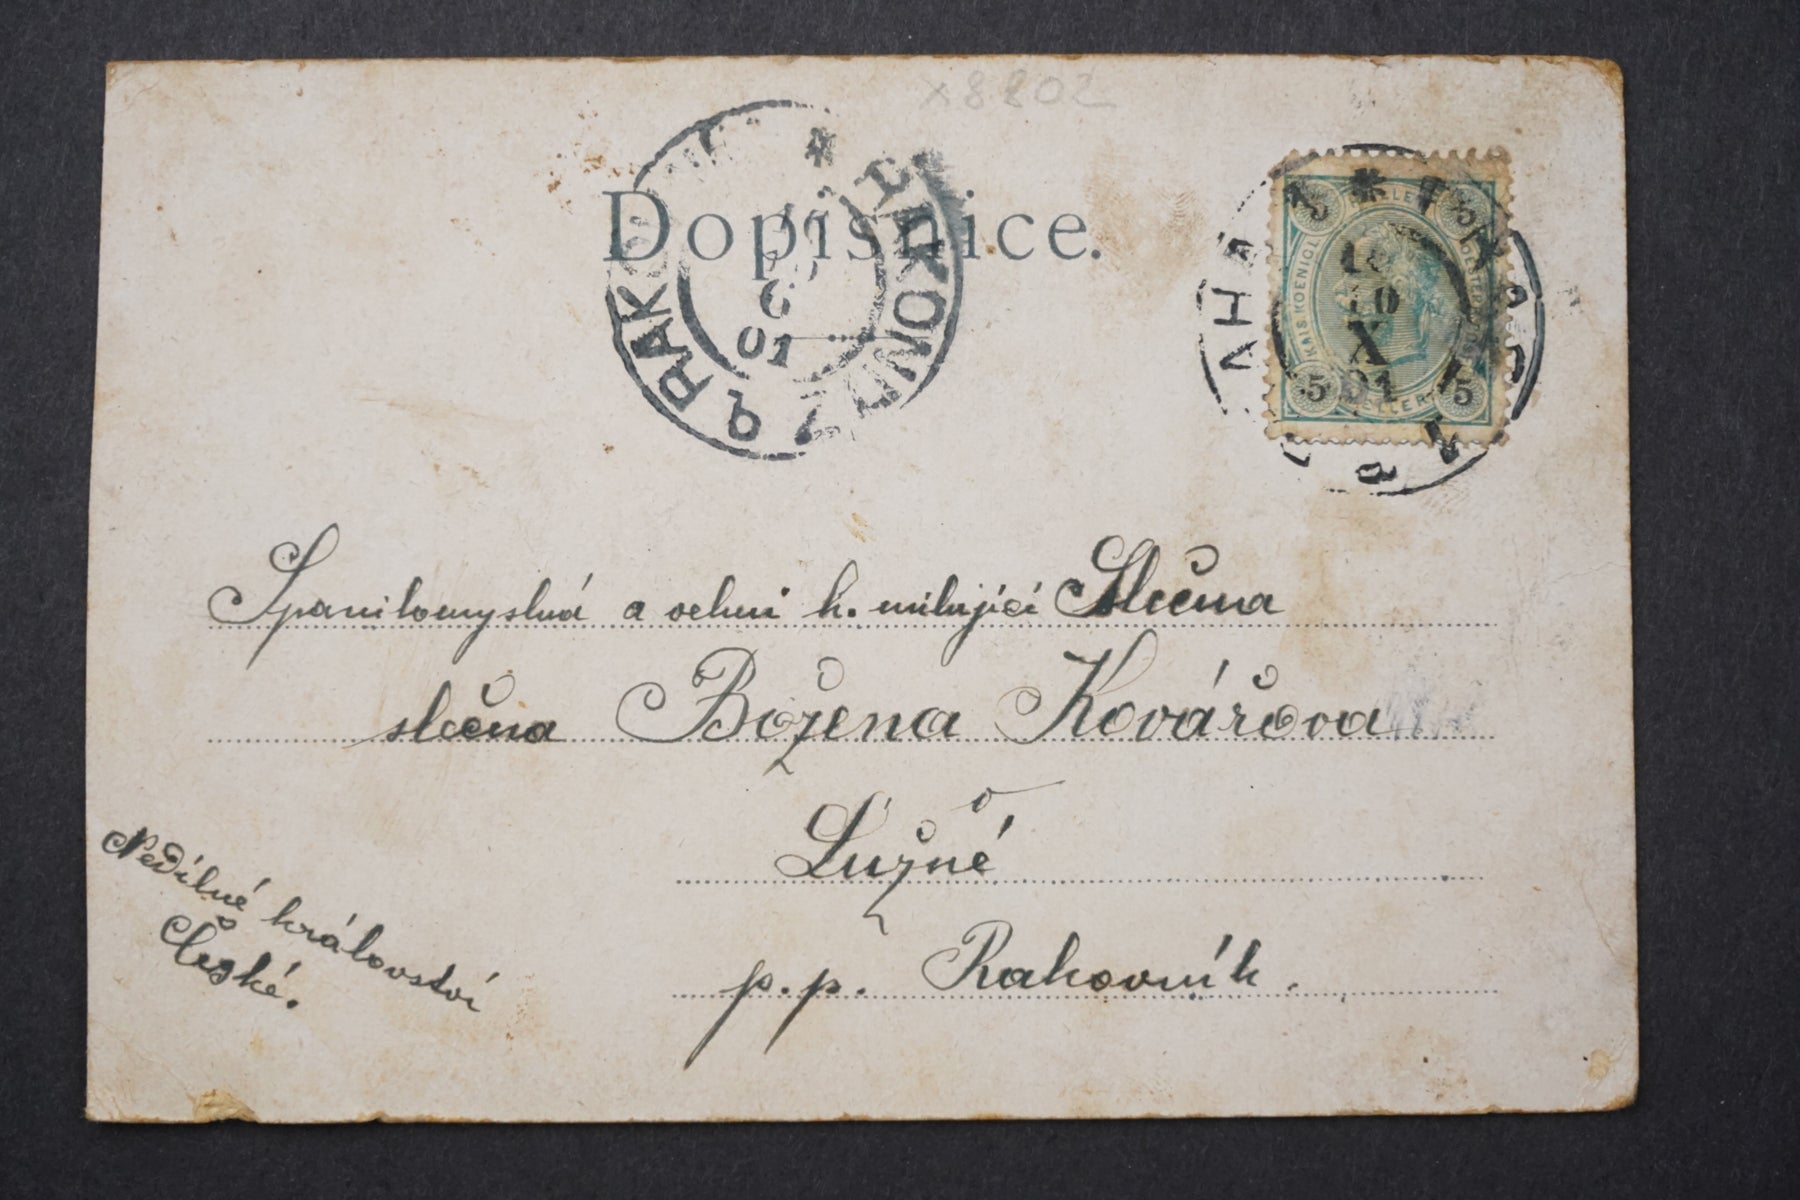 x8802
Dopisnice.
RAKONITZ RAKOVNÍK
01
PRAHA PRAG
5 HELLER 5
KAIS KOENIGL OESTERR
10
X
01
5 HELLER 5
Spanilomyslná a velmi h. milující Slečna
slečna Božena Kovářova
v
Lužné
p.p. Rakovník.
Nedílné království
České.